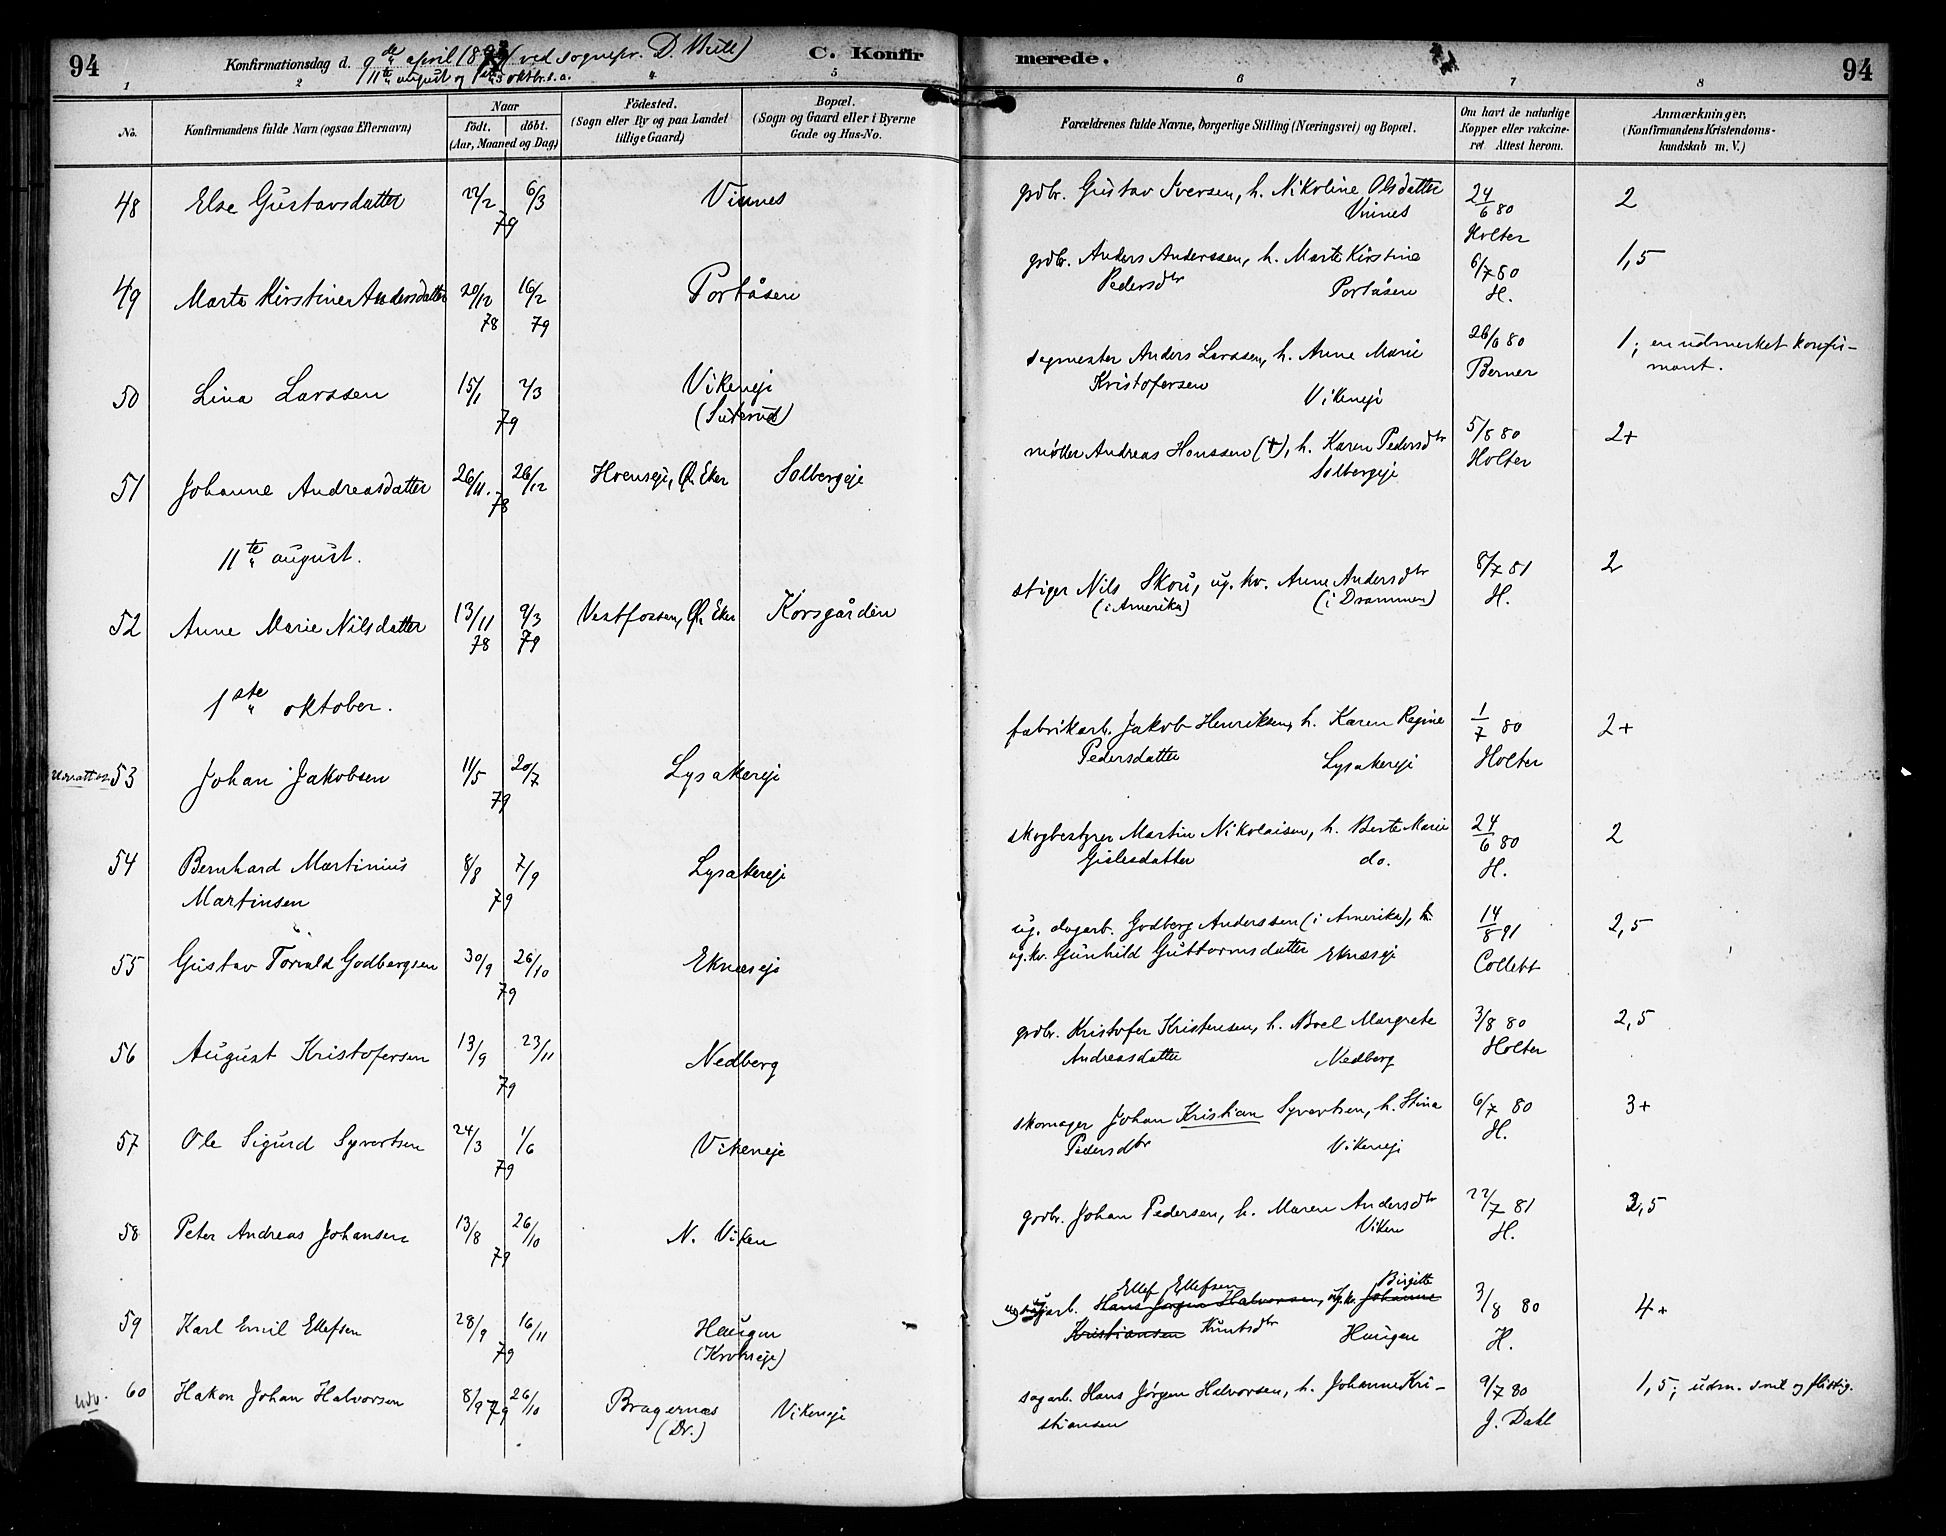 94
Konfirmationsdag d. 9de april 189 (ved sognepr. D. Bull)
11te august og 1ste oktbr. s.a.
C. Konfir
merede.
94
1 2 3 4 5 6 7 8
No. Konfirmandens fulde Navn (ogsaa Efternavn)
Naar
födt. döbt.
(Aar, Maaned og Dag)
Födested.
(Sogn eller By og paa Landet
tillige Gaard)
Bopæl.
(Sogn og Gaard eller i Byerne
Gade og Hus-No.
Forældrenes fulde Navne, borgerlige Stilling (Næringsvei) og Bopæl.
Om havt de naturlige
Kopper eller vakcine-
ret. Attest herom.
Anmærkninger.
(Konfirmandens Kristendoms-
kundskab m. V.)
48 Else Gustavsdatter 22/2 6/3 79 Vinnes
grdbr. Gustav Iversen, h. Nikoline Olsdatter
Vinnes
24/6 80
Holter
2
49 Marte Kirstine Andersdatter 20/12 78 16/2 79 Portåsen
grdbr. Anders Anderssen, h. Marte Kirstine
Pedersdtr Portåsen
6/7 80
H.
1,5
50 Lina Larssen 15/1 2/3 79 Vikeneje
(Suterud)
sagmester Anders Larssen, h. Anne Marie
Kristofersen Vikeneje
26/6 80
Berner
1; en udmerket konfir-
mant.
51 Johanne Andreasdatter 26/11. 26/12 78 Hoenseje, Ø. Eker Solbergeje
møller Andreas Hanssen (+), h. Karen Pedersdtr
Solbergeje
5/8 80
Holter
2+
11te august.
52 Anne Marie Nilsdatter 13/11 78 9/3 79 Vestfossen, Ø. Eker Korsgården
stiger Nils Skou, ug. kv. Anne Andersdtr
(i Amerika) (i Drammen)
8/7 81
H.
2
1ste oktober.
53 Johan Jakobsen 11/5 20/7 79 Lysakereje
fabrikarb. Jakob Henriksen, h. Karen Regine
Pedersdatter Lysakereje
1/7 80
Holter
2+
54 Bernhard Martinius
Martinsen 8/8 7/9 79 Lysakereje
skogbestyrer Martin Nikolaisen, h. Berte Marie
Gislesdatter do.
24/6 80
H.
2
55 Gustav Torvald Godbergsen 30/9 26/10 79 Eknæseje
ug. dagarb. Godberg Anderssen (i Amerika), h.
ug. kv. Gunhild Guttormsdatter Eknæseje
14/8 91
Collett
2,5
56 August Kristofersen 13/9 23/11 79 Nedberg
grdbr. Kristofer Kristensen, h. Boel Margrete
Andreasdatter Nedberg
3/8 80
Holter
2,5
57 Ole Sigurd Syvertsen 24/3 1/6 79 Vikeneje
skomager Johan Kristian Syvertsen, h. Stina
Pedersdtr Vikeneje
6/7 80
H.
3+
58 Peter Andreas Johansen 13/8 26/10 79 N. Viken
grdbr. Johan Pedersen, h. Maren Andersdtr
Viken
22/7 81
H.
3,5
59 Karl Emil Ellefsen 28/9 16/11 79 Haugen
(Krokseje)
Ellef Ellefsen Birgitte
Hans Jørgen Halvorsen, ug. kv. Johanne
Kristiansen Knutsdtr Haugen
3/8 80
H.
4+
60 Hakon Johan Halvorsen 8/9 79 26/10 Bragernæs
(Dr.) Vikeneje
sagarb. Hans Jørgen Halvorsen, h. Johanne Kri-
stiansen
9/7 80
J. Dahl
1,5; udm. snil og flittig.
udv.